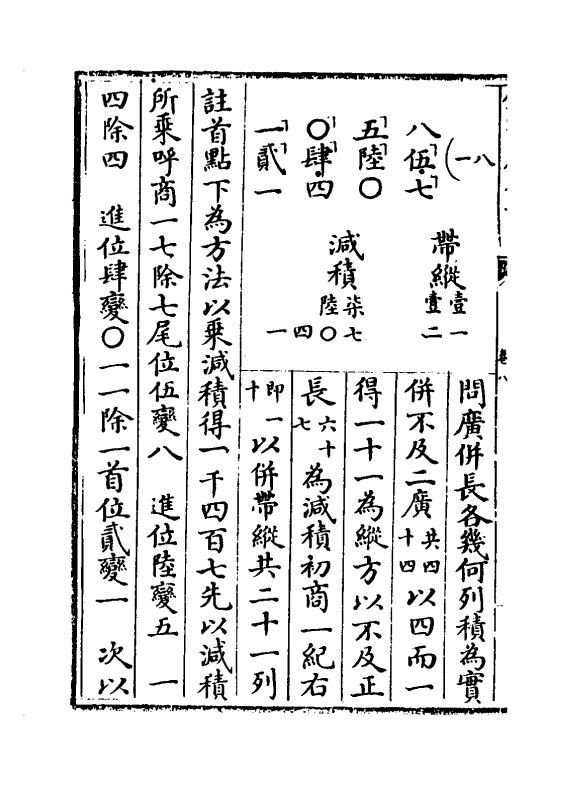 八一
八伍七
五陸〇
〇肆四
一貳一
帶縱
壹一
壹二
減積
柒七
陸〇
四
一
問廣併長各幾何列積為實
併不及二廣共四十四以四而一
得一十一為縱方以不及正
長六十七為減積初商一紀右
即一十以併帶縱共二十一列
註首點下為方法以乘減積得一千四百七先以減積
所乘呼商一七除七尾位伍變八　進位陸變五　一
四除四　進位肆變〇一一除一首位貳變一　次以